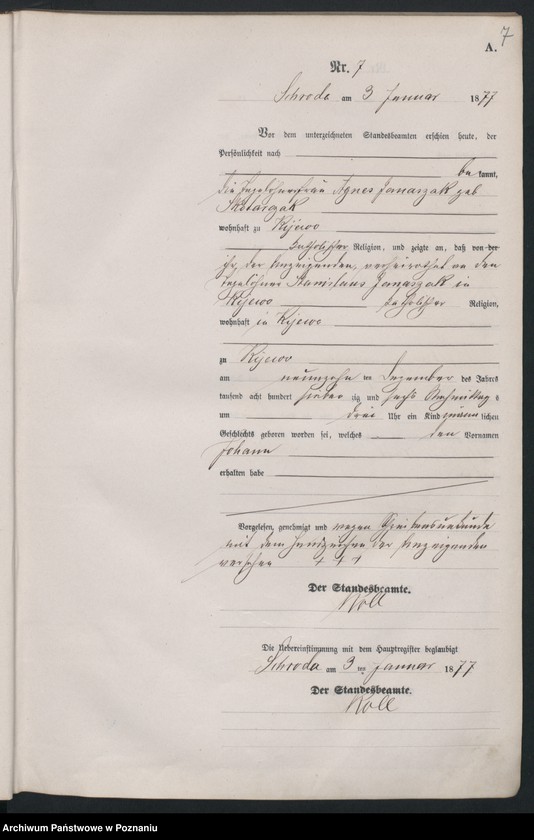 7
A.
Nr. 7
Schroda am 3 Januar 1877
Vor dem unterzeichneten Standesbeamten erschien heute, der
Persönlichkeit nach
be kannt,
die Tagelöhnerfrau Agnes Janaszak geb
Skotarczak
wohnhaft zu Kijewo
katholischer Religion, und zeigte an, daß von der
ihr, der Anzeigenden, verheirathet an den
Tagelöhner Stanislaus Janaszak in
Kijewo katholischer Religion,
wohnhaft in Kijewo
zu Kijewo
am neunzehn ten Dezember des Jahres
tausend acht hundert sieben zig und sechs Nachmittag s
um drei Uhr ein Kind männ lichen
Geschlechts geboren worden sei, welches den Vornamen
Johann
erhalten habe
Vorgelesen, genehmigt und wegen Schreibensunkunde
mit dem Handzeichen der Anzeigenden
versehen + + +
Der Standesbeamte.
Koll
Die Uebereinstimmung mit dem Hauptregister beglaubigt
Schroda am 3 ten Januar 1877
Der Standesbeamte.
Koll
Archiwum Państwowe w Poznaniu